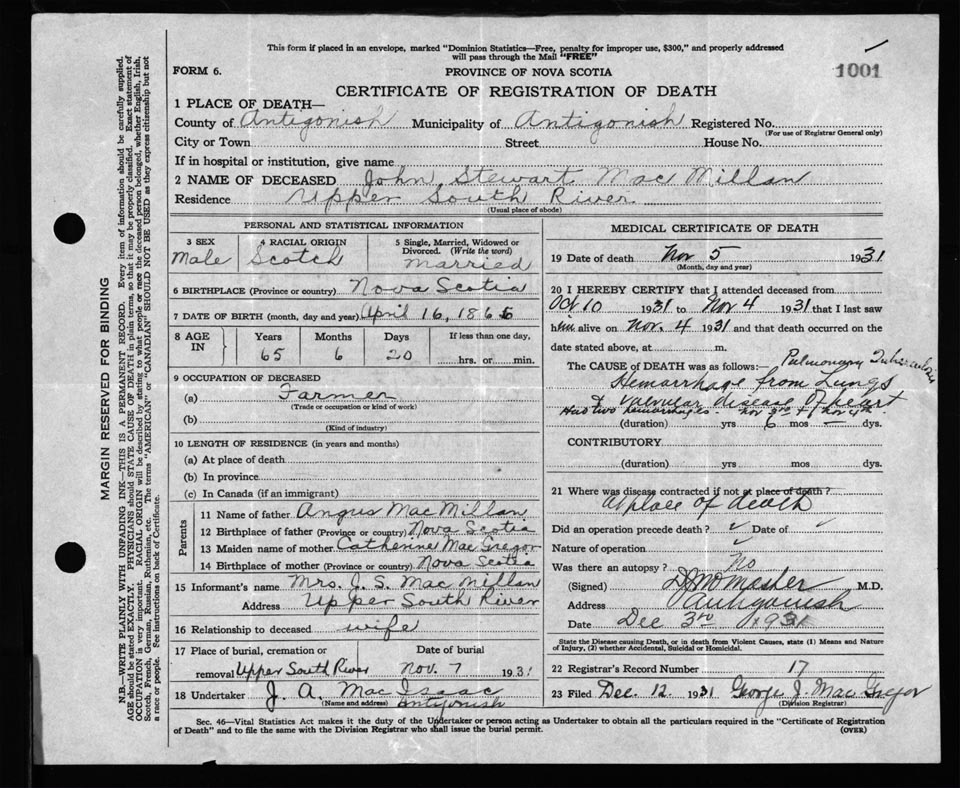 This form if placed in an envelope, marked "Dominion Statistics—Free, penalty for improper use, $300," and properly addressed
will pass through the Mail "FREE"
FORM 6.
PROVINCE OF NOVA SCOTIA
1001
CERTIFICATE OF REGISTRATION OF DEATH
1 PLACE OF DEATH—
County of Antigonish Municipality of Antigonish Registered No.
(For use of Registrar General only)
City or Town Street House No.
If in hospital or institution, give name
2 NAME OF DECEASED John Stewart MacMillan
Residence Upper South River
(Usual place of abode)
PERSONAL AND STATISTICAL INFORMATION
3 SEX 4 RACIAL ORIGIN 5 Single, Married, Widowed or Divorced. (Write the word)
Male Scotch Married
6 BIRTHPLACE (Province or country) Nova Scotia
7 DATE OF BIRTH (month, day and year) April 16, 1866
8 AGE IN Years Months Days If less than one day,
65 6 20 hrs. or min.
9 OCCUPATION OF DECEASED
(a) Farmer
(Trade or occupation or kind of work)
(b)
(Kind of industry)
10 LENGTH OF RESIDENCE (in years and months)
(a) At place of death
(b) In province
(c) In Canada (if an immigrant)
Parents
11 Name of father Angus MacMillan
12 Birthplace of father (Province or country) Nova Scotia
13 Maiden name of mother Catherine MacGregor
14 Birthplace of mother (Province or country) Nova Scotia
15 Informant's name Mrs. J. S. MacMillan
Address Upper South River
16 Relationship to deceased wife
17 Place of burial, cremation or Date of burial
removal Upper South River Nov. 7 1931
18 Undertaker J. A. MacIsaac
(Name and address) Antigonish
MEDICAL CERTIFICATE OF DEATH
19 Date of death Nov 5 1931
(Month, day and year)
20 I HEREBY CERTIFY that I attended deceased from
Oct 10 1931 to Nov 4 1931 that I last saw
him alive on Nov. 4 1931 and that death occurred on the
date stated above, at m.
The CAUSE of DEATH was as follows:— Pulmonary Tuberculosis
Hemorrhage from Lungs
& Valvular disease of heart
Had two hemorrhages - Nov 3rd & Nov 4th.
(duration) yrs 6 mos — dys.
CONTRIBUTORY
(duration) yrs mos dys.
21 Where was disease contracted if not at place of death?
At place of death
Did an operation precede death? Date of
Nature of operation
Was there an autopsy? No
(Signed) M.D.
Address Antigonish
Date Dec 3rd 1931
State the Disease causing Death, or in death from Violent Causes, state (1) Means and Nature
of Injury, (2) whether Accidental, Suicidal or Homicidal.
22 Registrar's Record Number 17
23 Filed Dec. 12 1931 George J. MacGregor
(Division Registrar)
Sec. 46—Vital Statistics Act makes it the duty of the Undertaker or person acting as Undertaker to obtain all the particulars required in the "Certificate of Registration
of Death" and to file the same with the Division Registrar who shall issue the burial permit.
(OVER)
MARGIN RESERVED FOR BINDING
N.B.—WRITE PLAINLY WITH UNFADING INK—THIS IS A PERMANENT RECORD. Every item of information should be carefully supplied.
AGE should be stated EXACTLY. PHYSICIANS should STATE CAUSE OF DEATH in plain terms, so that it may be properly classified. Exact statement of
OCCUPATION is very important. RACIAL ORIGIN will be described by stating to what people or race the deceased person belonged, whether English, Irish,
Scotch, French, German, Russian, Ruthenian, etc. The terms "AMERICAN" or "CANADIAN" SHOULD NOT BE USED as they express citizenship but not
a race or people. See instructions on back of Certificate.